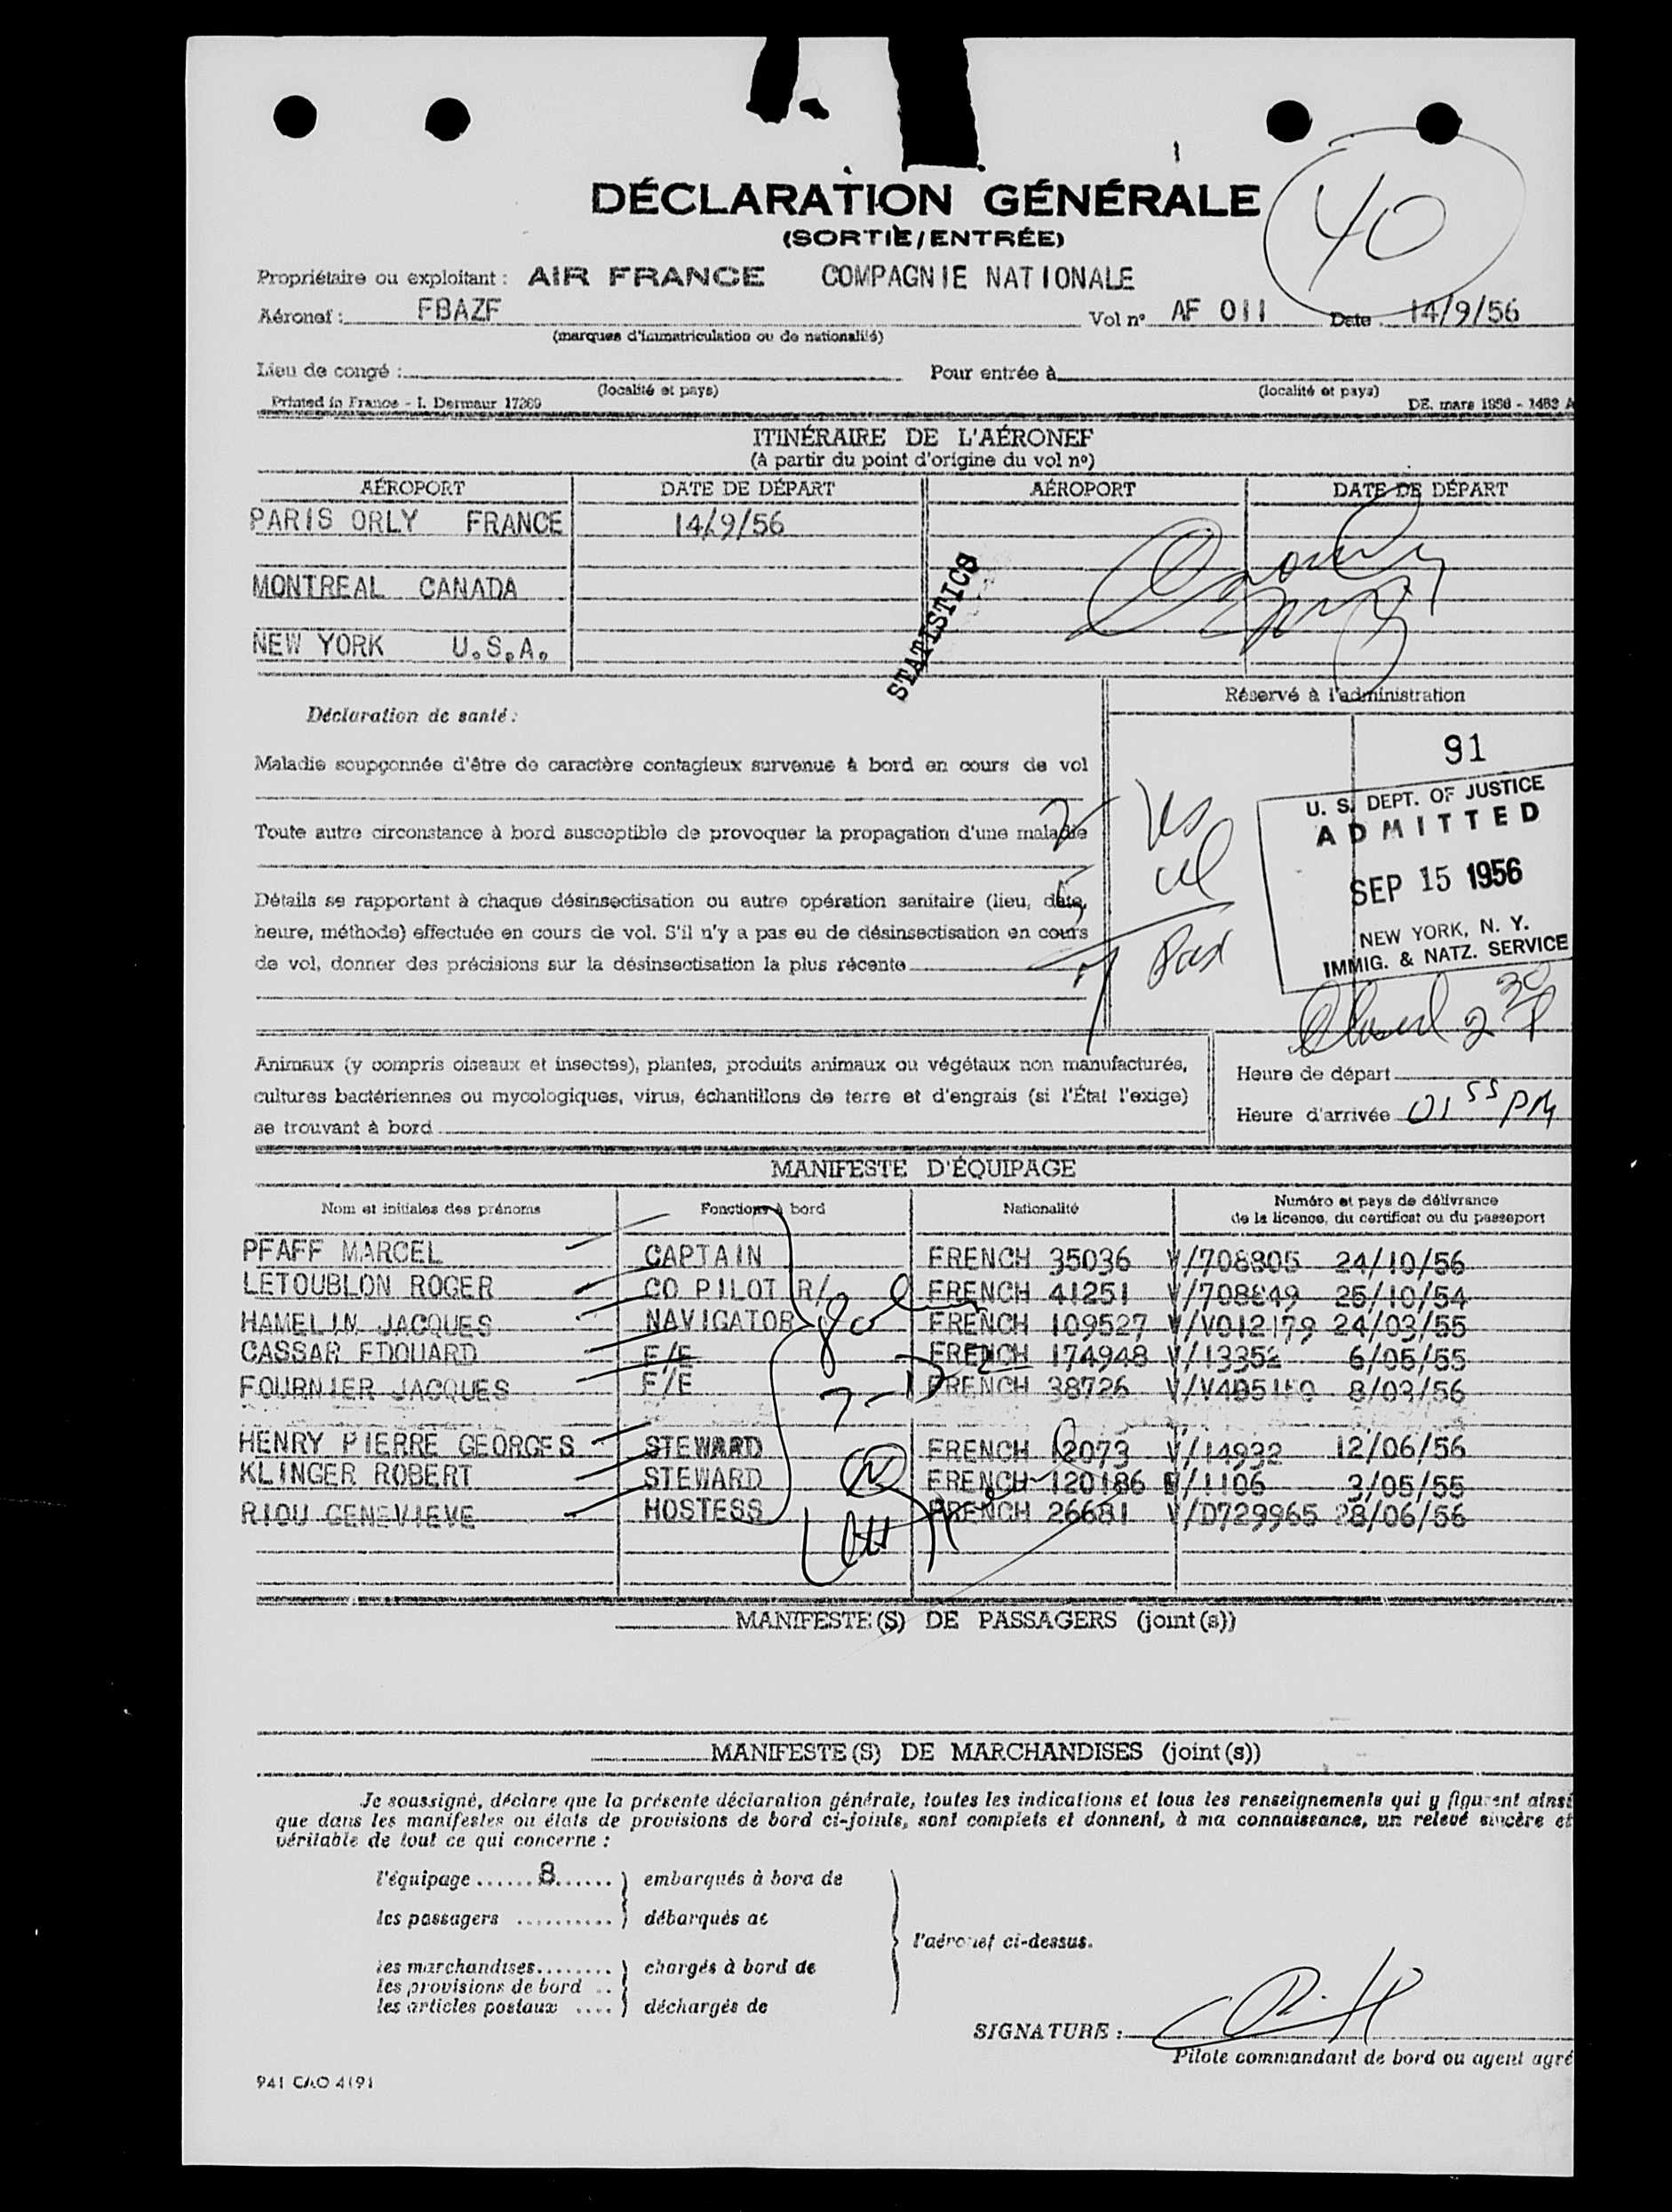 40
DÉCLARATION GÉNÉRALE
(SORTIE/ENTRÉE)
Propriétaire ou exploitant : AIR FRANCE COMPAGNIE NATIONALE
Aéronef : FBAZF Vol nº AF 011 Date 14/9/56
(marques d'immatriculation ou de nationalité)
Lieu de congé : Pour entrée à
(localité et pays) (localité et pays)
Printed in France - I. Dermaur 17269 DE. mars 1956 - 1453 A
ITINÉRAIRE DE L'AÉRONEF
(à partir du point d'origine du vol nº)
AÉROPORT DATE DE DÉPART AÉROPORT DATE DE DÉPART
PARIS ORLY FRANCE 14/9/56
MONTREAL CANADA
NEW YORK U.S.A.
STATISTICS
Réservé à l'administration
Déclaration de santé :
91
Maladie soupçonnée d'être de caractère contagieux survenue à bord en cours de vol
U. S. DEPT. OF JUSTICE
ADMITTED
SEP 15 1956
NEW YORK, N. Y.
IMMIG. & NATZ. SERVICE
Toute autre circonstance à bord susceptible de provoquer la propagation d'une maladie
Détails se rapportant à chaque désinsectisation ou autre opération sanitaire (lieu, date,
heure, méthode) effectuée en cours de vol. S'il n'y a pas eu de désinsectisation en cours
de vol, donner des précisions sur la désinsectisation la plus récente
Animaux (y compris oiseaux et insectes), plantes, produits animaux ou végétaux non manufacturés,
cultures bactériennes ou mycologiques, virus, échantillons de terre et d'engrais (si l'État l'exige)
se trouvant à bord
Heure de départ
Heure d'arrivée 01 55 PM
MANIFESTE D'ÉQUIPAGE
Nom et initiales des prénoms Fonctions à bord Nationalité Numéro et pays de délivrance
de la licence, du certificat ou du passeport
PFAFF MARCEL CAPTAIN FRENCH 35036 V/708805 24/10/56
LETOUBLON ROGER CO PILOT R/ FRENCH 41251 V/708849 25/10/54
HAMELIN JACQUES NAVIGATOR FRENCH 109527 V/V012179 24/03/55
CASSAR EDOUARD F/E FRENCH 174948 V/13352 6/05/55
FOURNIER JACQUES F/E FRENCH 38726 8/03/56
HENRY PIERRE GEORGES STEWARD FRENCH 12073 V/14932 12/06/56
KLINGER ROBERT STEWARD FRENCH 120186 /1106 3/05/55
RIOU GENEVIEVE HOSTESS FRENCH 26681 V/D729965 28/06/56
MANIFESTE(S) DE PASSAGERS (joint(s))
MANIFESTE(S) DE MARCHANDISES (joint(s))
Je soussigné, déclare que la présente déclaration générale, toutes les indications et tous les renseignements qui y figurent ainsi
que dans les manifestes ou états de provisions de bord ci-joints, sont complets et donnent, à ma connaissance, un relevé sincère et
véritable de tout ce qui concerne :
l'équipage ...... 8 ...... embarqués à bord de
les passagers .......... débarqués de
l'aéronef ci-dessus.
les marchandises........ chargés à bord de
les provisions de bord ..
les articles postaux .... déchargés de
SIGNATURE :
Pilote commandant de bord ou agent agré
941 CAO 4191